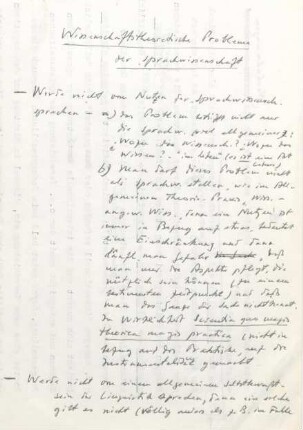 Wissenschaftstheoretische Probleme
der Sprachwissenschaft
— Werde nicht vom Nutzen der Sprachwissensch.
sprechen – a) das Problem betrifft nicht nur
die Sprachw. sond. allgemeiner:
"Wozu das Wissensch.?" "Wozu das
Wissen?" im Leben (es ist eine
b) Man darf dieses Problem nicht
als Sprachw. stellen, wie im All-
gemeinen Theorie – Praxis, Wiss. –
angew. Wiss., denn ein Nutzen ist
immer in Bezug auf etwas, bedeutet
eine Einschränkung und dann
läuft man Gefahr, daß
man nur die Aspekte pflegt, die
nützlich sein können (zu einem
bestimmten Zeitpunkt) und daß
man das Ganze für
In Wirklichkeit scientia quo magis
theorica magis practica (nicht in
Bezug auf das Praktische, auf die
Instrumentalität gemacht
— Werde nicht von einem allgemeinen Selbstbewußt-
sein der Linguistik sprechen, denn ein solches
gibt es nicht (völlig anders als z.B. im Falle